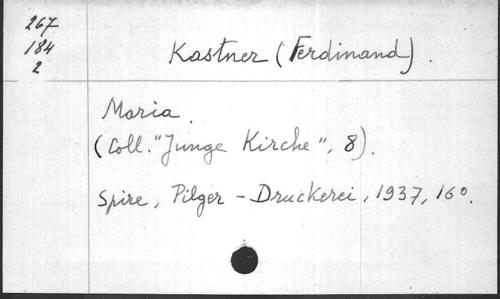 267
184
2
Kastner (Ferdinand).
Maria.
(Coll. "Junge Kirche", 8).
Spire, Pilger - Druckerei, 1937, 16°.